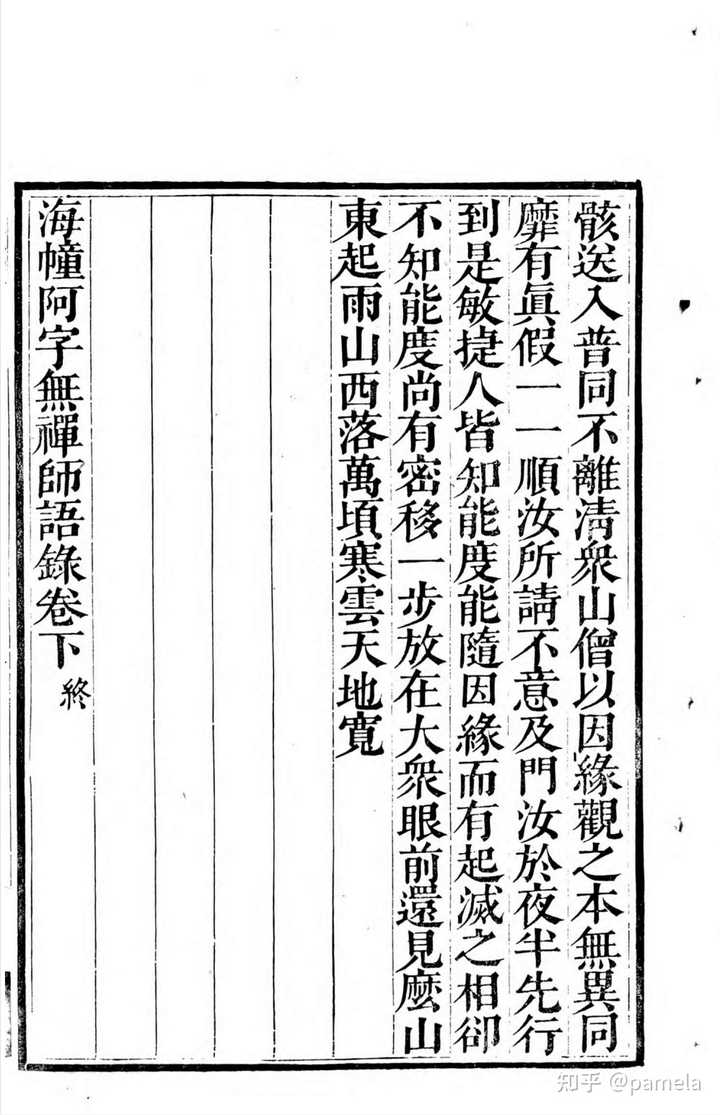 骸送入普同不離淸衆山僧以因緣觀之本無異同
靡有眞假一一順汝所請不意及門汝於夜半先行
到是敏捷人皆知能度能隨因緣而有起滅之相卻
不知能度尚有密移一步放在大衆眼前還見麼山
東起雨山西落萬頃寒雲天地寬
海幢阿字無禪師語錄卷下 終
知乎 @pamela